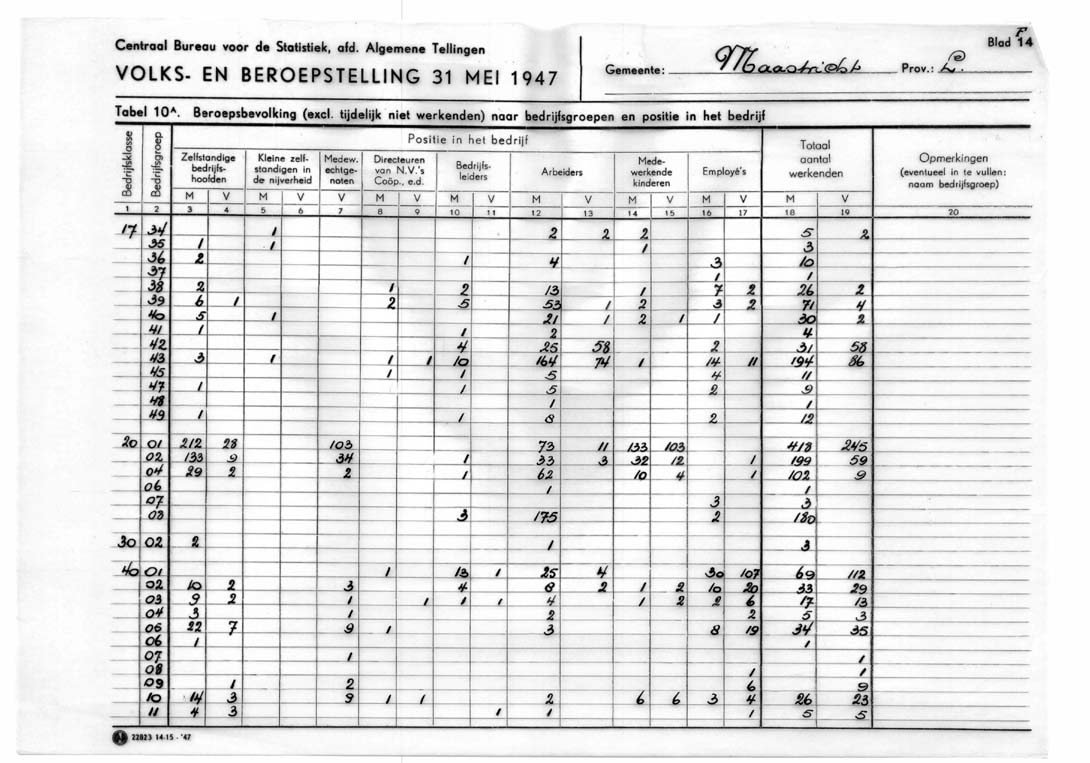 Centraal Bureau voor de Statistiek, afd. Algemene Tellingen
VOLKS- EN BEROEPSTELLING 31 MEI 1947
Gemeente: Maastricht Prov.: L.
Blad F 14
Tabel 10A. Beroepsbevolking (excl. tijdelijk niet werkenden) naar bedrijfsgroepen en positie in het bedrijf
Bedrijfsklasse Bedrijfsgroep Positie in het bedrijf Totaal aantal werkenden Opmerkingen (eventueel in te vullen: naam bedrijfsgroep)
Zelfstandige bedrijfshoofden Kleine zelfstandigen in de nijverheid Medew. echtgenoten Directeuren van N.V.'s Coöp., e.d. Bedrijfsleiders Arbeiders Medewerkende kinderen Employé's
M V M V V M V M V M V M V M V M V
1 2 3 4 5 6 7 8 9 10 11 12 13 14 15 16 17 18 19 20
17 34 1 2 2 2 5 2
35 1 1 1 3
36 2 1 4 3 10
37 1 1
38 2 1 2 13 1 7 2 26 2
39 6 1 2 5 53 1 2 3 2 71 4
40 5 1 21 1 2 1 1 30 2
41 1 1 2 4
42 4 25 58 2 31 58
43 3 1 1 1 10 164 74 1 14 11 194 86
45 1 1 5 4 11
47 1 1 5 2 9
48 1 1
49 1 1 8 2 12
20 01 212 28 103 73 11 133 103 418 245
02 133 9 34 1 33 3 32 12 1 199 59
04 29 2 2 1 62 10 4 1 102 9
06 1 1
07 3 3
03 3 175 2 180
30 02 2 1 3
40 01 1 13 1 25 4 30 107 69 112
02 10 2 3 4 8 2 1 2 10 20 33 29
03 9 2 1 1 1 1 4 1 2 2 6 17 13
04 3 1 2 2 5 3
06 22 7 9 1 3 8 19 34 35
06 1 1
07 1 1
08 1 1
09 1 2 6 9
10 14 3 9 1 1 2 6 6 3 4 26 23
11 4 3 1 1 1 5 5
22823 14-15 - '47